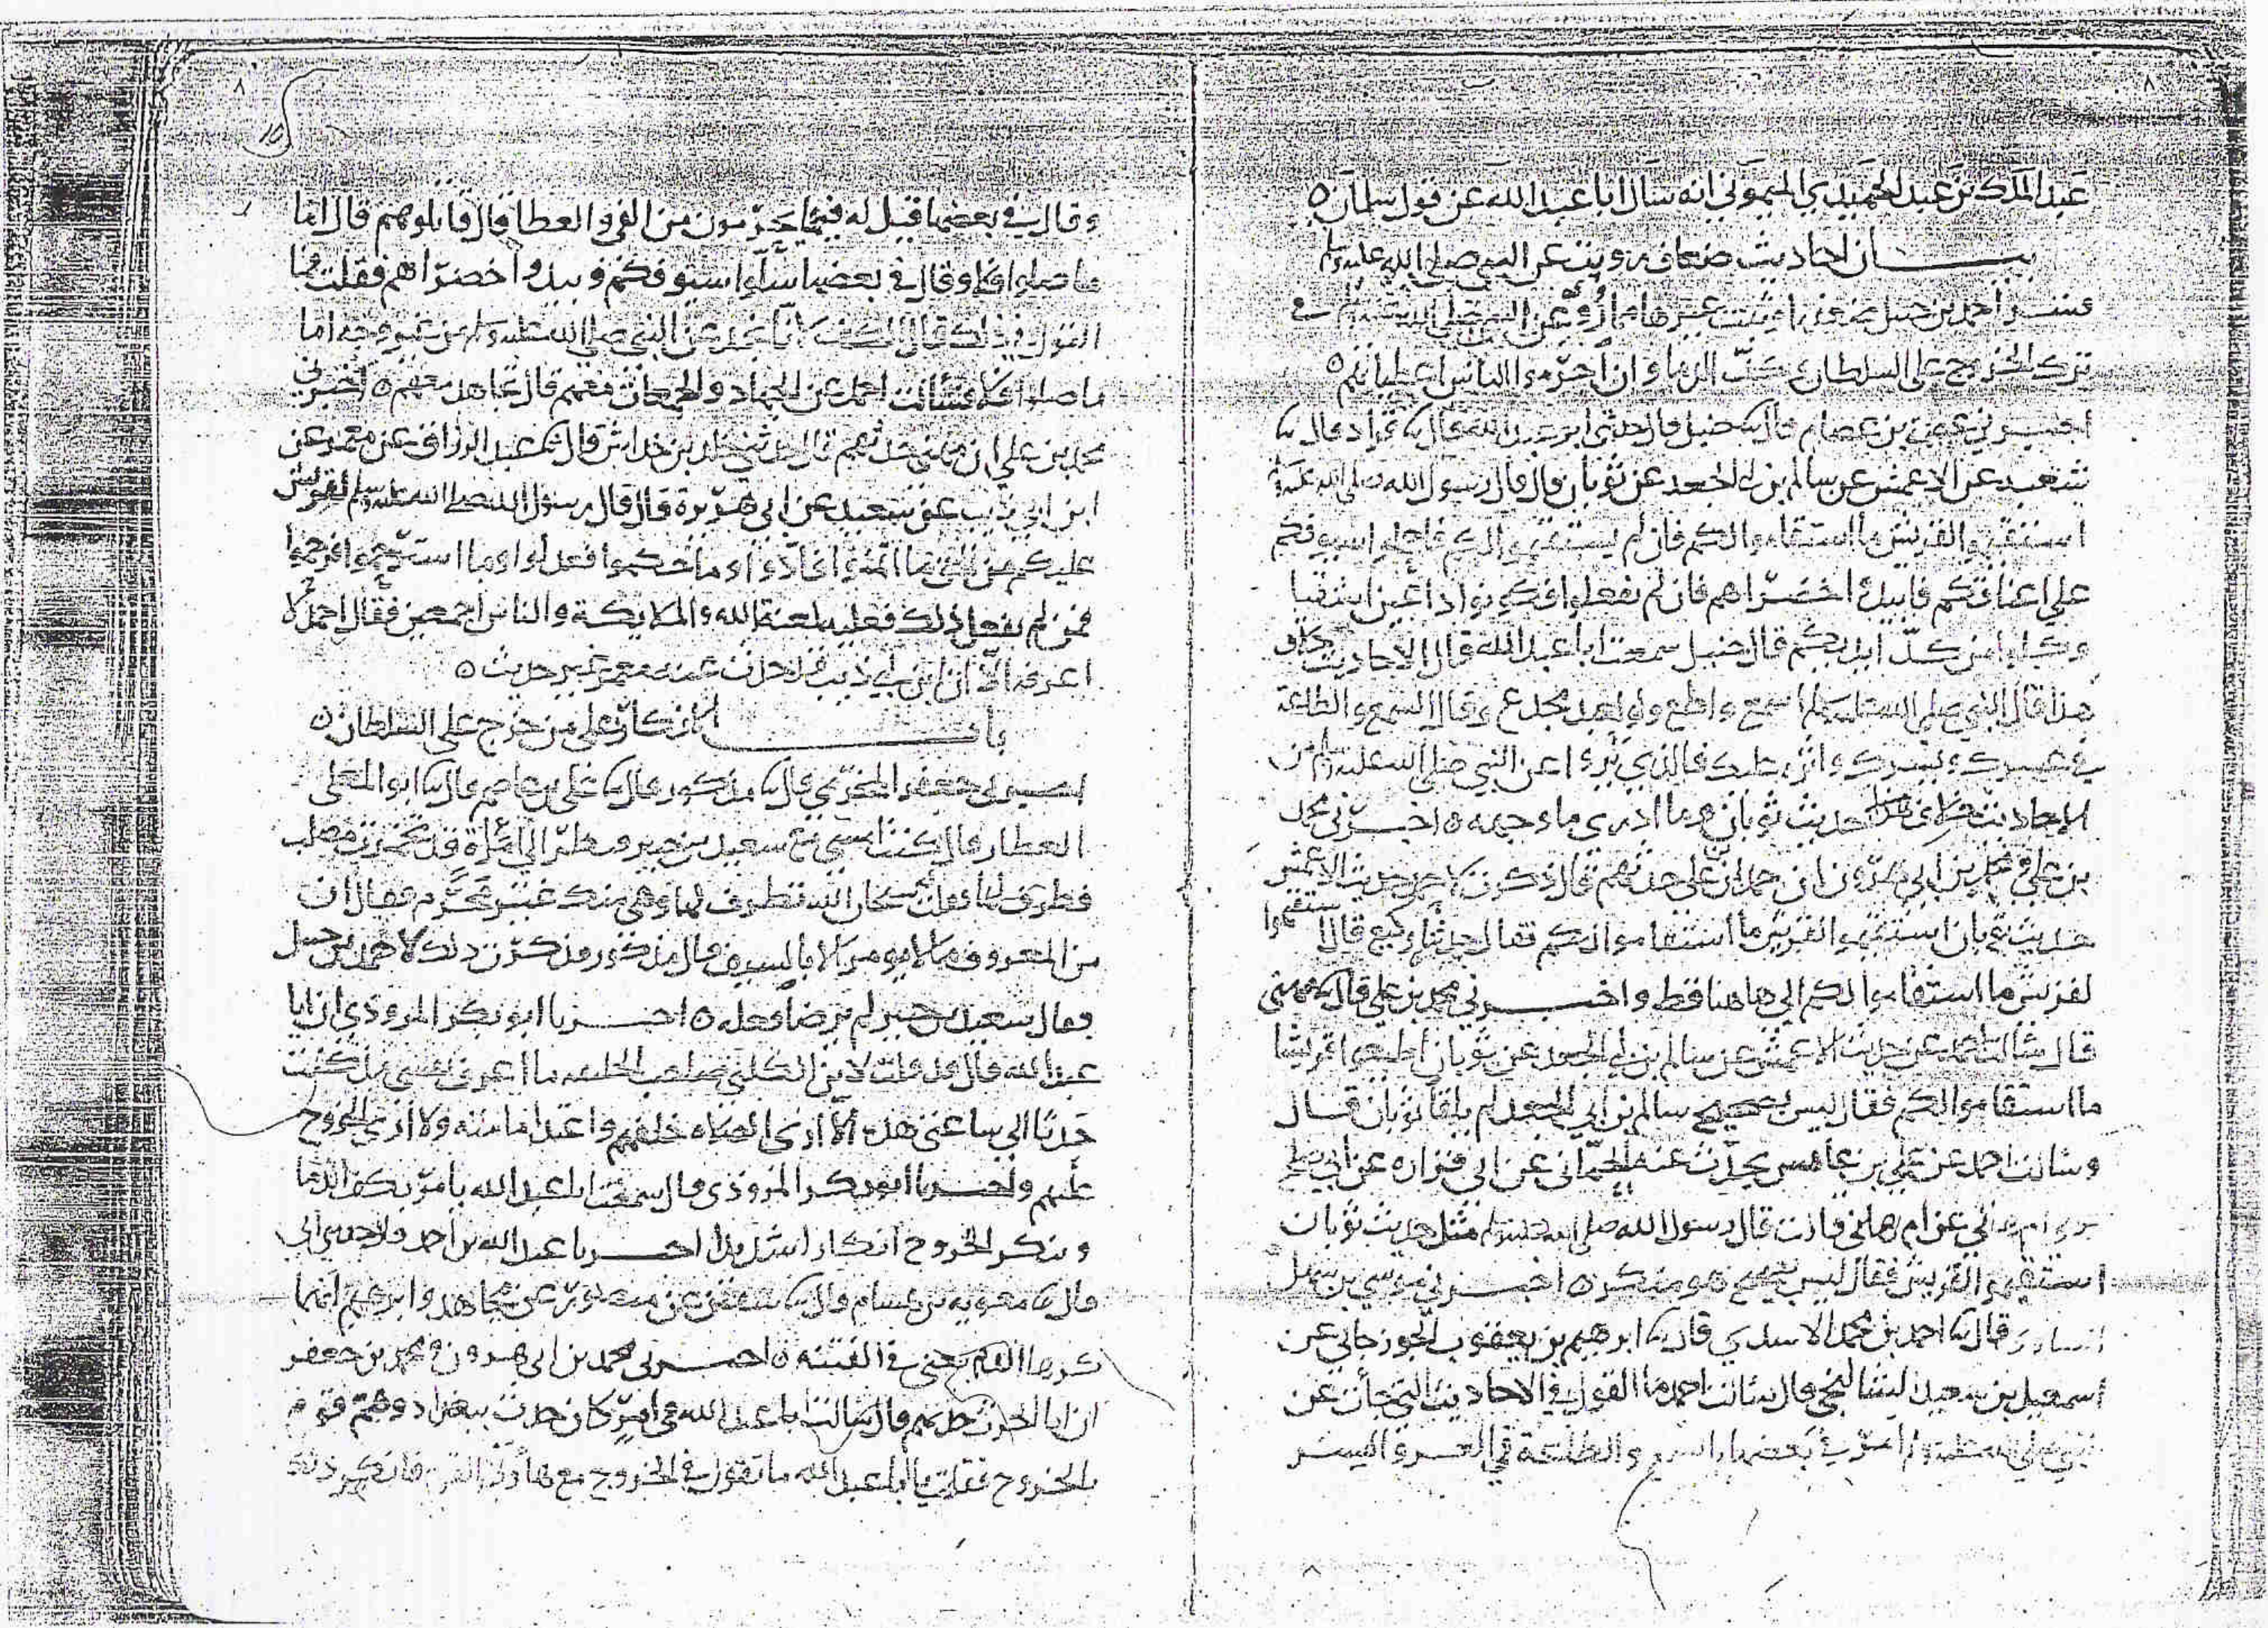 ٨
عبد الملك بن عبد الحميد الميموني انه سال ابا عبد الله عن قول سلمان ه
بيان احاديث ضعاف رويت عن النبي صلى الله عليه وسلم
احمد بن حنبل غيرها مما روي عن النبي صلى الله عليه وسلم في
ترك الخروج على السلطان وكف الدما وان حرموا الناس اعطياتهم ه
اخبرني عصمة بن عصام قال حنبل قال حدثني ابو عبد الله قال قال
شعبه عن الاعمش عن سالم بن ابي الجعد عن ثوبان قال قال رسول الله صلى الله عليه وسلم
استقيموا لقريش ما استقاموا لكم فان لم يستقيموا لكم فاحملوا سيوفكم
على اعناقكم فابيدوا خضراهم فان لم تفعلوا فكونوا زراعين اشقيا
وكلوا من كد ايديكم قال حنبل سمعت ابا عبد الله قال الاحاديث خلاف
هذا قال النبي صلى الله عليه وسلم اسمع واطع ولو لعبد مجدع وقال السمع والطاعة
في عسرك ويسرك واثرة عليك فالذي يروا عن النبي صلى الله عليه وسلم من
الاحاديث خلاف هذا حديث ثوبان وما ادري ما وجهه ه اخبرني محمد
بن علي ومحمد بن ابي هرون ان حمدان بن علي حدثهم قال ذكرت لاحمد حديث الاعمش
حديث ثوبان استقيموا لقريش ما استقاموا لكم فقال حدثنا وكيع قال استقيموا
لقريش ما استقاموا لكم الى هاهنا قط واخبرني محمد بن علي قال مهنى
قال سالت احمد عن حديث الاعمش عن سالم بن ابي الجعد عن ثوبان اطيعوا قريشا
ما استقاموا لكم فقال ليس بصحيح سالم بن ابي الجعد لم يلقا ثوبان قال
وسالت احمد عن علي بن عابس يحدث عنه الحماني عن ابي فزاره عن ابي صالح
مولى ام هاني عن ام هاني قالت قال رسول الله صلى الله عليه وسلم مثل حديث ثوبان
استقيموا لقريش فقال ليس بصحيح هو منكر ه اخبرني موسى بن سهل
قال احمد بن محمد الاسدي قال ابرهيم بن يعقوب الجوزجاني عن
اسمعيل بن سعيد الشالنجي قال سالت احمد ما القول في الاحاديث التي جات عن
النبي صلى الله عليه وسلم امر في بعضها بالسمع والطاعة في العسر واليسر
٨
وقال في بعضها قيل له فيما يحرمون من الفي والعطا قال قاتلوهم قال اما
ما صلوا فلا وقال في بعضها سلوا سيوفكم وبيدوا خضراهم فقلت فما
القول في ذلك قال الكف لانا نجد عن النبي صلى الله عليه وسلم من غير وجه اما
ما صلوا فلا فسألت احمد عن الجهاد والجمعات معهم قال تجاهد معهم ه اخبرني
محمد بن علي ان مهنى حدثهم قال حدثني خالد بن خداش قال عبد الرزاق عن معمر عن
ابن ابي ذيب عن سعيد عن ابي هريرة قال قال رسول الله صلى الله عليه وسلم لقريش
عليكم من الحق ما ائتمنوا فادوا وما حكموا فعدلوا وما استرحموا فرحموا
فمن لم يفعل ذلك فعليه لعنة الله والملايكة والناس اجمعين فقال احمد لا
اعرفه الا ان ابن ابي ذيب قد حدث عنه معمر غير حديث ه
باب الانكار على من خرج على السلطان ه
جعفر المخرمي قال مذكور قال علي بن عاصم قال ابو المعلى
العطار قال كنت امشي مع سعيد بن جبير ونظر الى امراة قد
ان
من المعروف ما لا يومر الا بالسيف قال مذكور فذكرت ذلك لاحمد بن حنبل
فقال سعيد بن جبير لم يرضا فعله ه اخبرنا ابو بكر المروذي ان ابا
عبد الله قال قد قلت لابن الكلبي صاحب الخليفه ما اعرف نفسي مذ كنت
حدثا الى ساعتي هذه الا ارى الصلاه خلفهم واعتد امامته ولا ارى الخروج
عليهم واخبرنا ابو بكر المروذي قال سمعت ابا عبد الله يامر بكف الدما
وينكر الخروج انكارا شديدا اخبرنا عبد الله بن احمد قال حدثني ابي
قال معويه بن هشام قال سفين عن منصور عن مجاهد وابرهيم انهما
كرها الدم يعني في الفتنه ه اخبرني محمد بن ابي هرون ومحمد بن جعفر
ان ابا الحرث حدثهم قال سالت ابا عبد الله في امر كان حدث ببغداد وهم قوم
بالخروج فقلت يا ابا عبد الله ما تقول في الخروج مع هاولا القوم فانكر ذلك